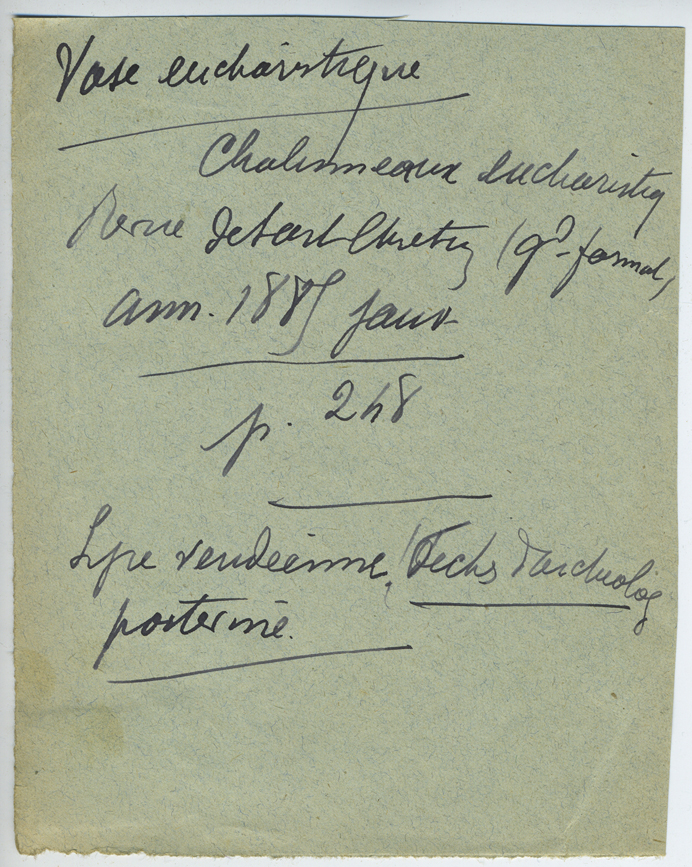 Vase eucharistique
Chalumeaux eucharistiq
Revue de l'art Chretien (gd format,
ann. 1885 janv
p. 248
vendéenne, d'archeolog